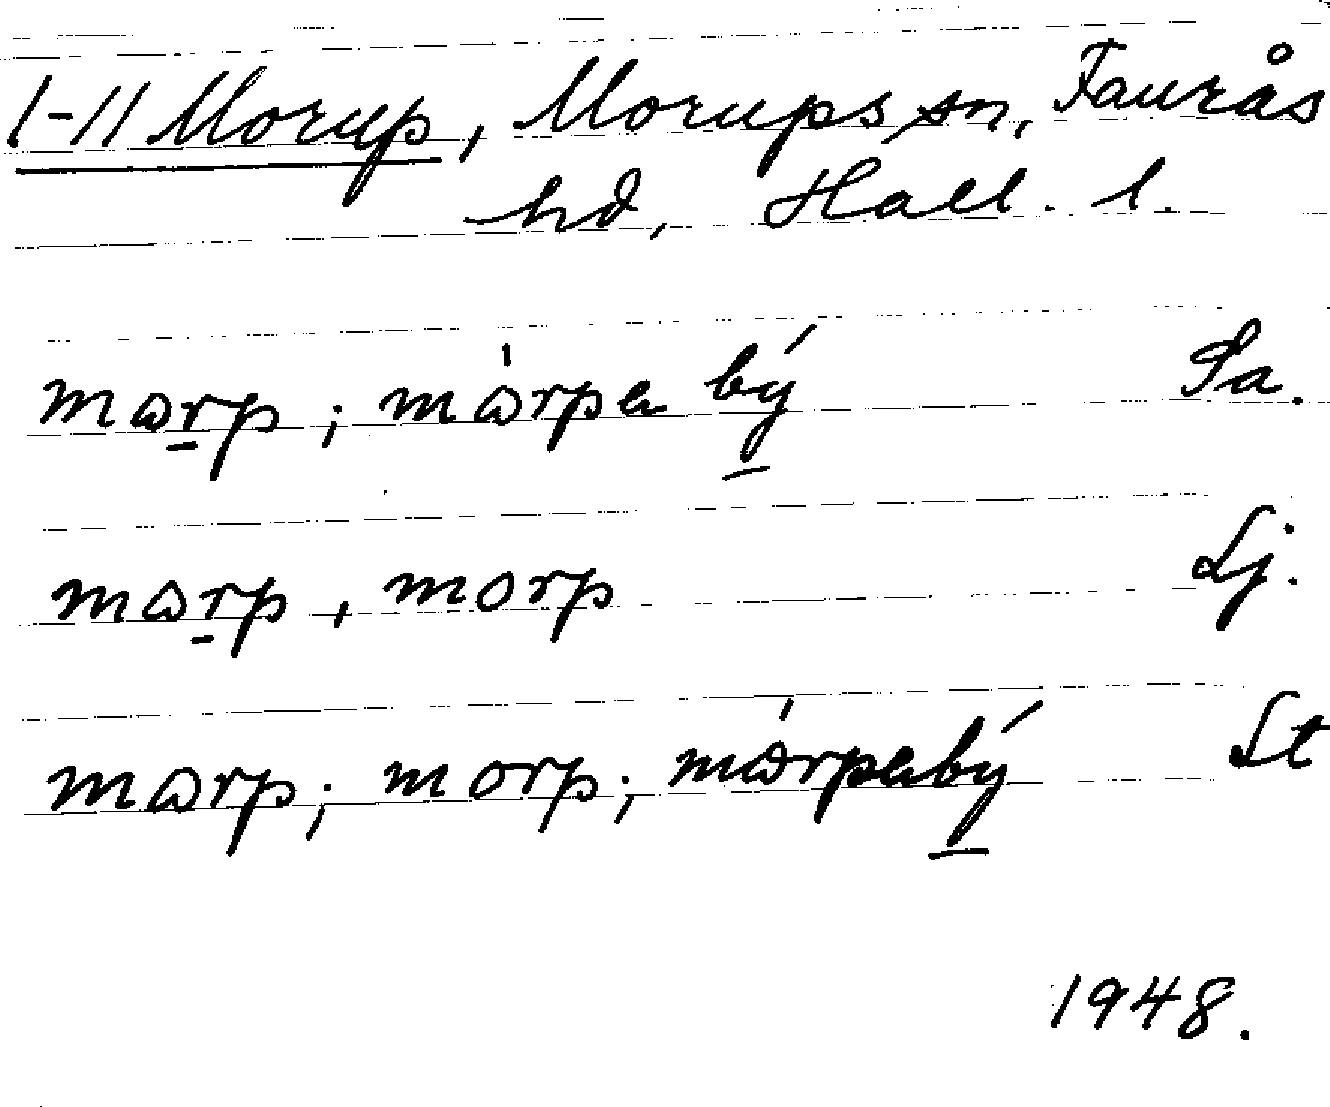 1-11 Morup, Morups sn, Faurås
hd, Hall. l.
mɷr̲p ; mɷ̀rpa bý̲ Sa.
mɷr̲p , morp Lj.
mɷrp ; morp ; mɷ̀rpabý̲ St
1948.